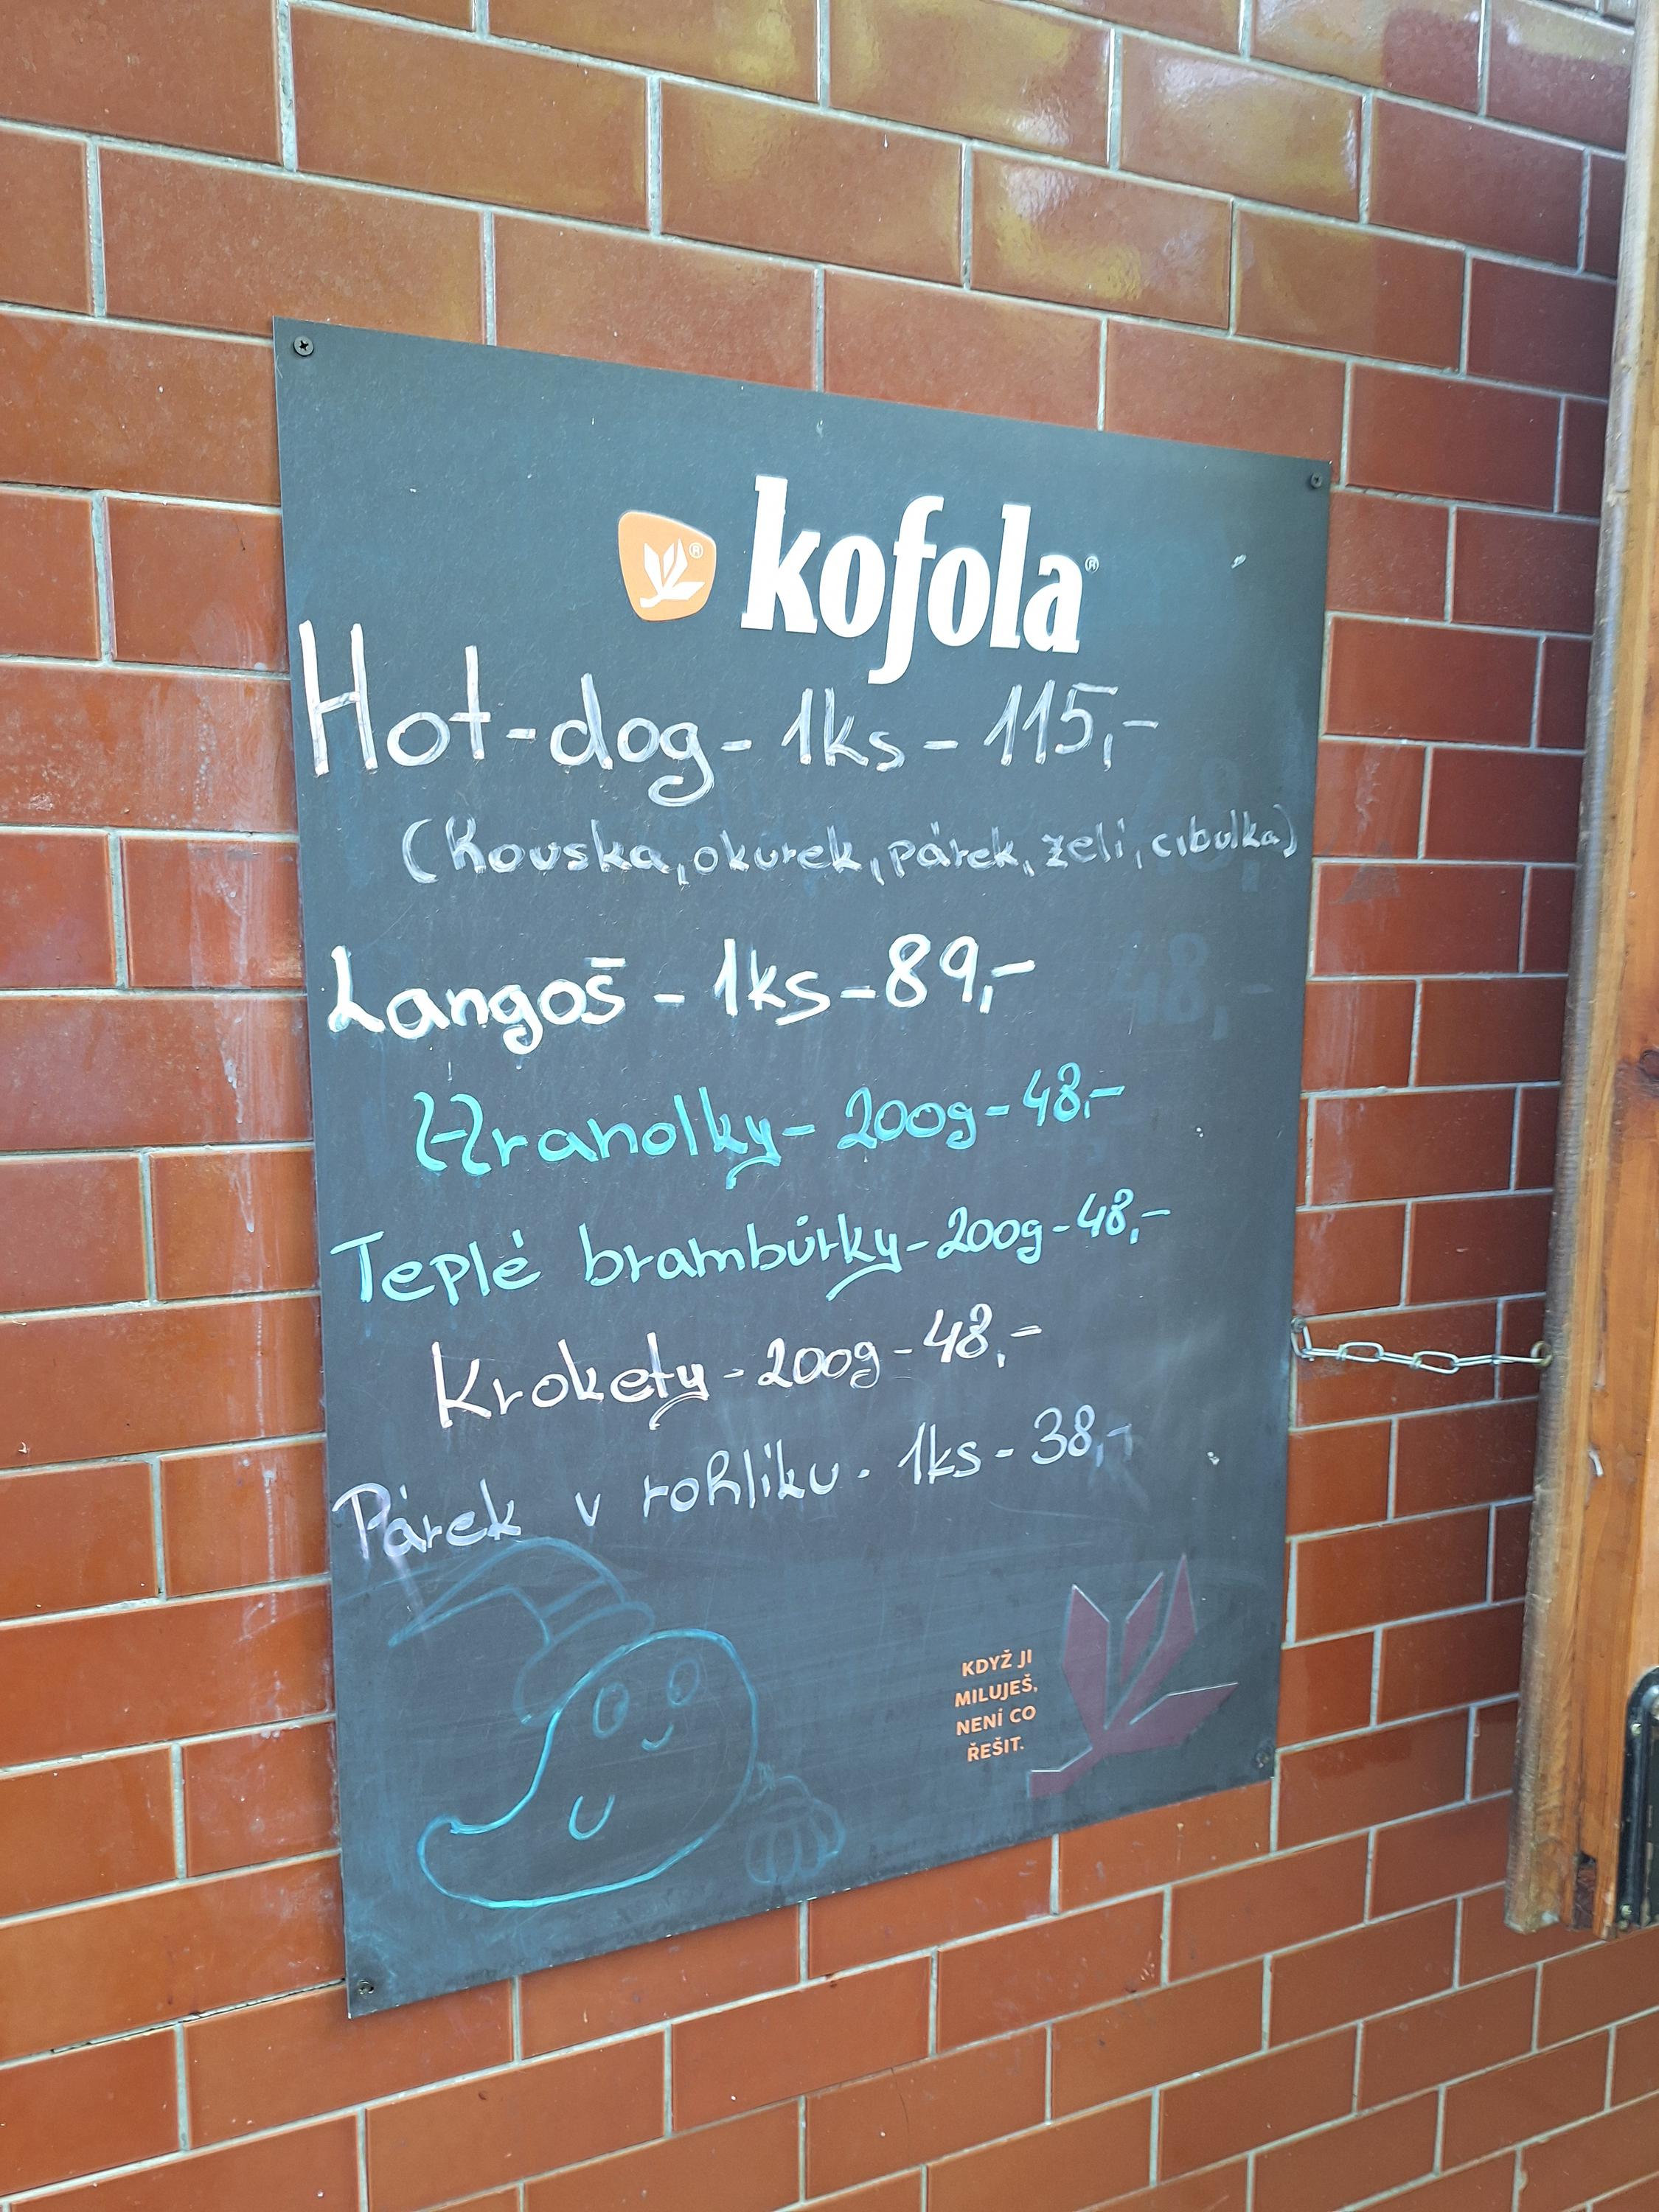 kofola
Hot-dog - 1ks - 115,-
(Rouska, okurek, párek, zelí, cibulka)
Langoš - 1ks - 89,-
Hranolky - 200g - 48,-
Teplé brambúrky - 200g - 48,-
Krokety - 200g - 48,-
Párek v rohlíku - 1ks - 38,-
KDYŽ JI
MILUJEŠ,
NENÍ CO
ŘEŠIT.